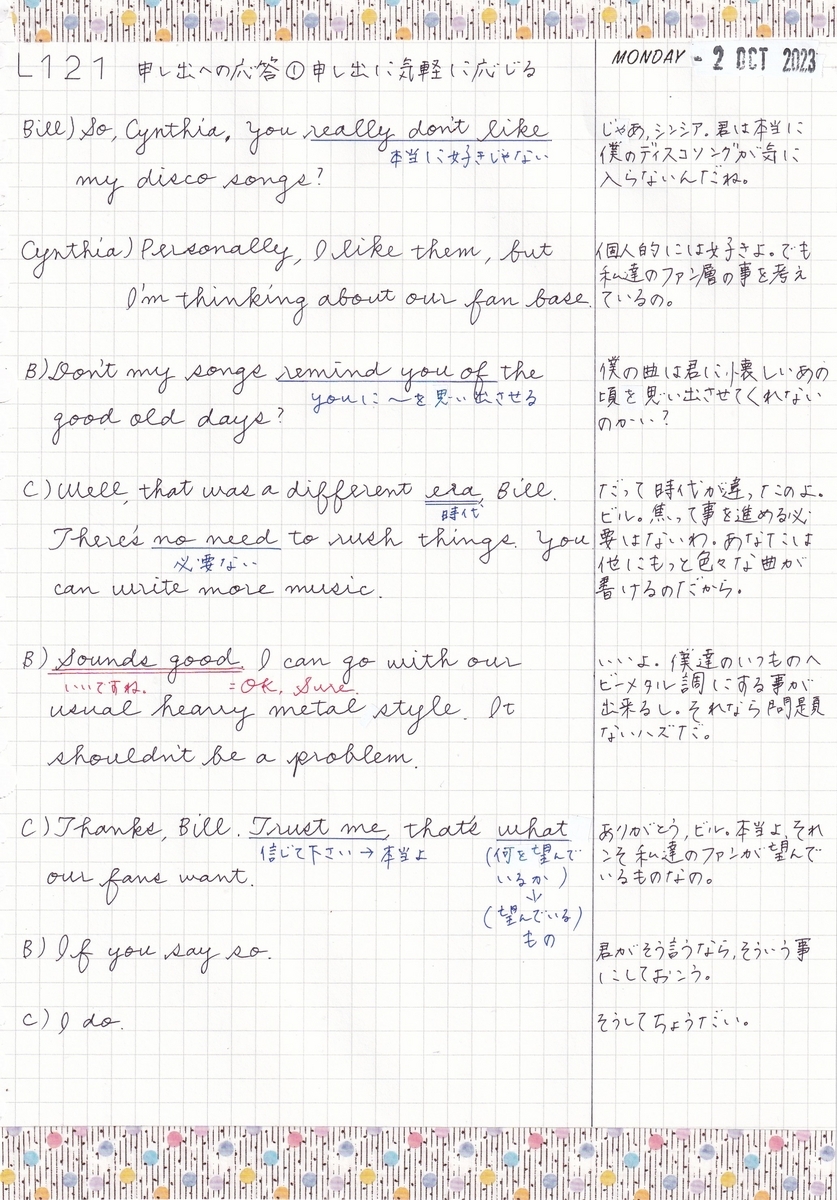 L121 申し出への応答① 申し出に気軽に応じる
MONDAY - 2 OCT 2023
Bill) So, Cynthia, you really don't like
本当に好きじゃない
my disco songs?
じゃあ,シンシア。君は本当に
僕のディスコソングが気に
入らないんだね。
Cynthia) Personally, I like them, but
I'm thinking about our fan base.
個人的には好きよ。でも
私達のファン層の事を考え
ているの。
B) Don't my songs remind you of the
youに〜を思い出させる
good old days?
僕の曲は君に懐しいあの
頃を思い出させてくれない
のかい?
C) Well, that was a different era, Bill.
時代
There's no need to rush things. You
必要ない
can write more music.
だって時代が違ったのよ。
ビル。焦って事を進める必
要はないわ。あなたには
他にもっと色々な曲が
書けるのだから。
B) Sounds good. I can go with our
いいですね。 =OK, Sure
usual heavy metal style. It
shouldn't be a problem.
いいよ。僕達のいつものヘ
ビーメタル調にする事が
出来るし。それなら問題
ないハズだ。
C) Thanks, Bill. Trust me, that's what
信じて下さい → 本当よ
(何を望んで
いるか)
↓
(望んでいる)
もの
our fans want.
ありがとう,ビル。本当よ,それ
こそ私達のファンが望んで
いるものなの。
B) If you say so.
君がそう言うなら,そういう事
にしておこう。
C) I do.
そうしてちょうだい。